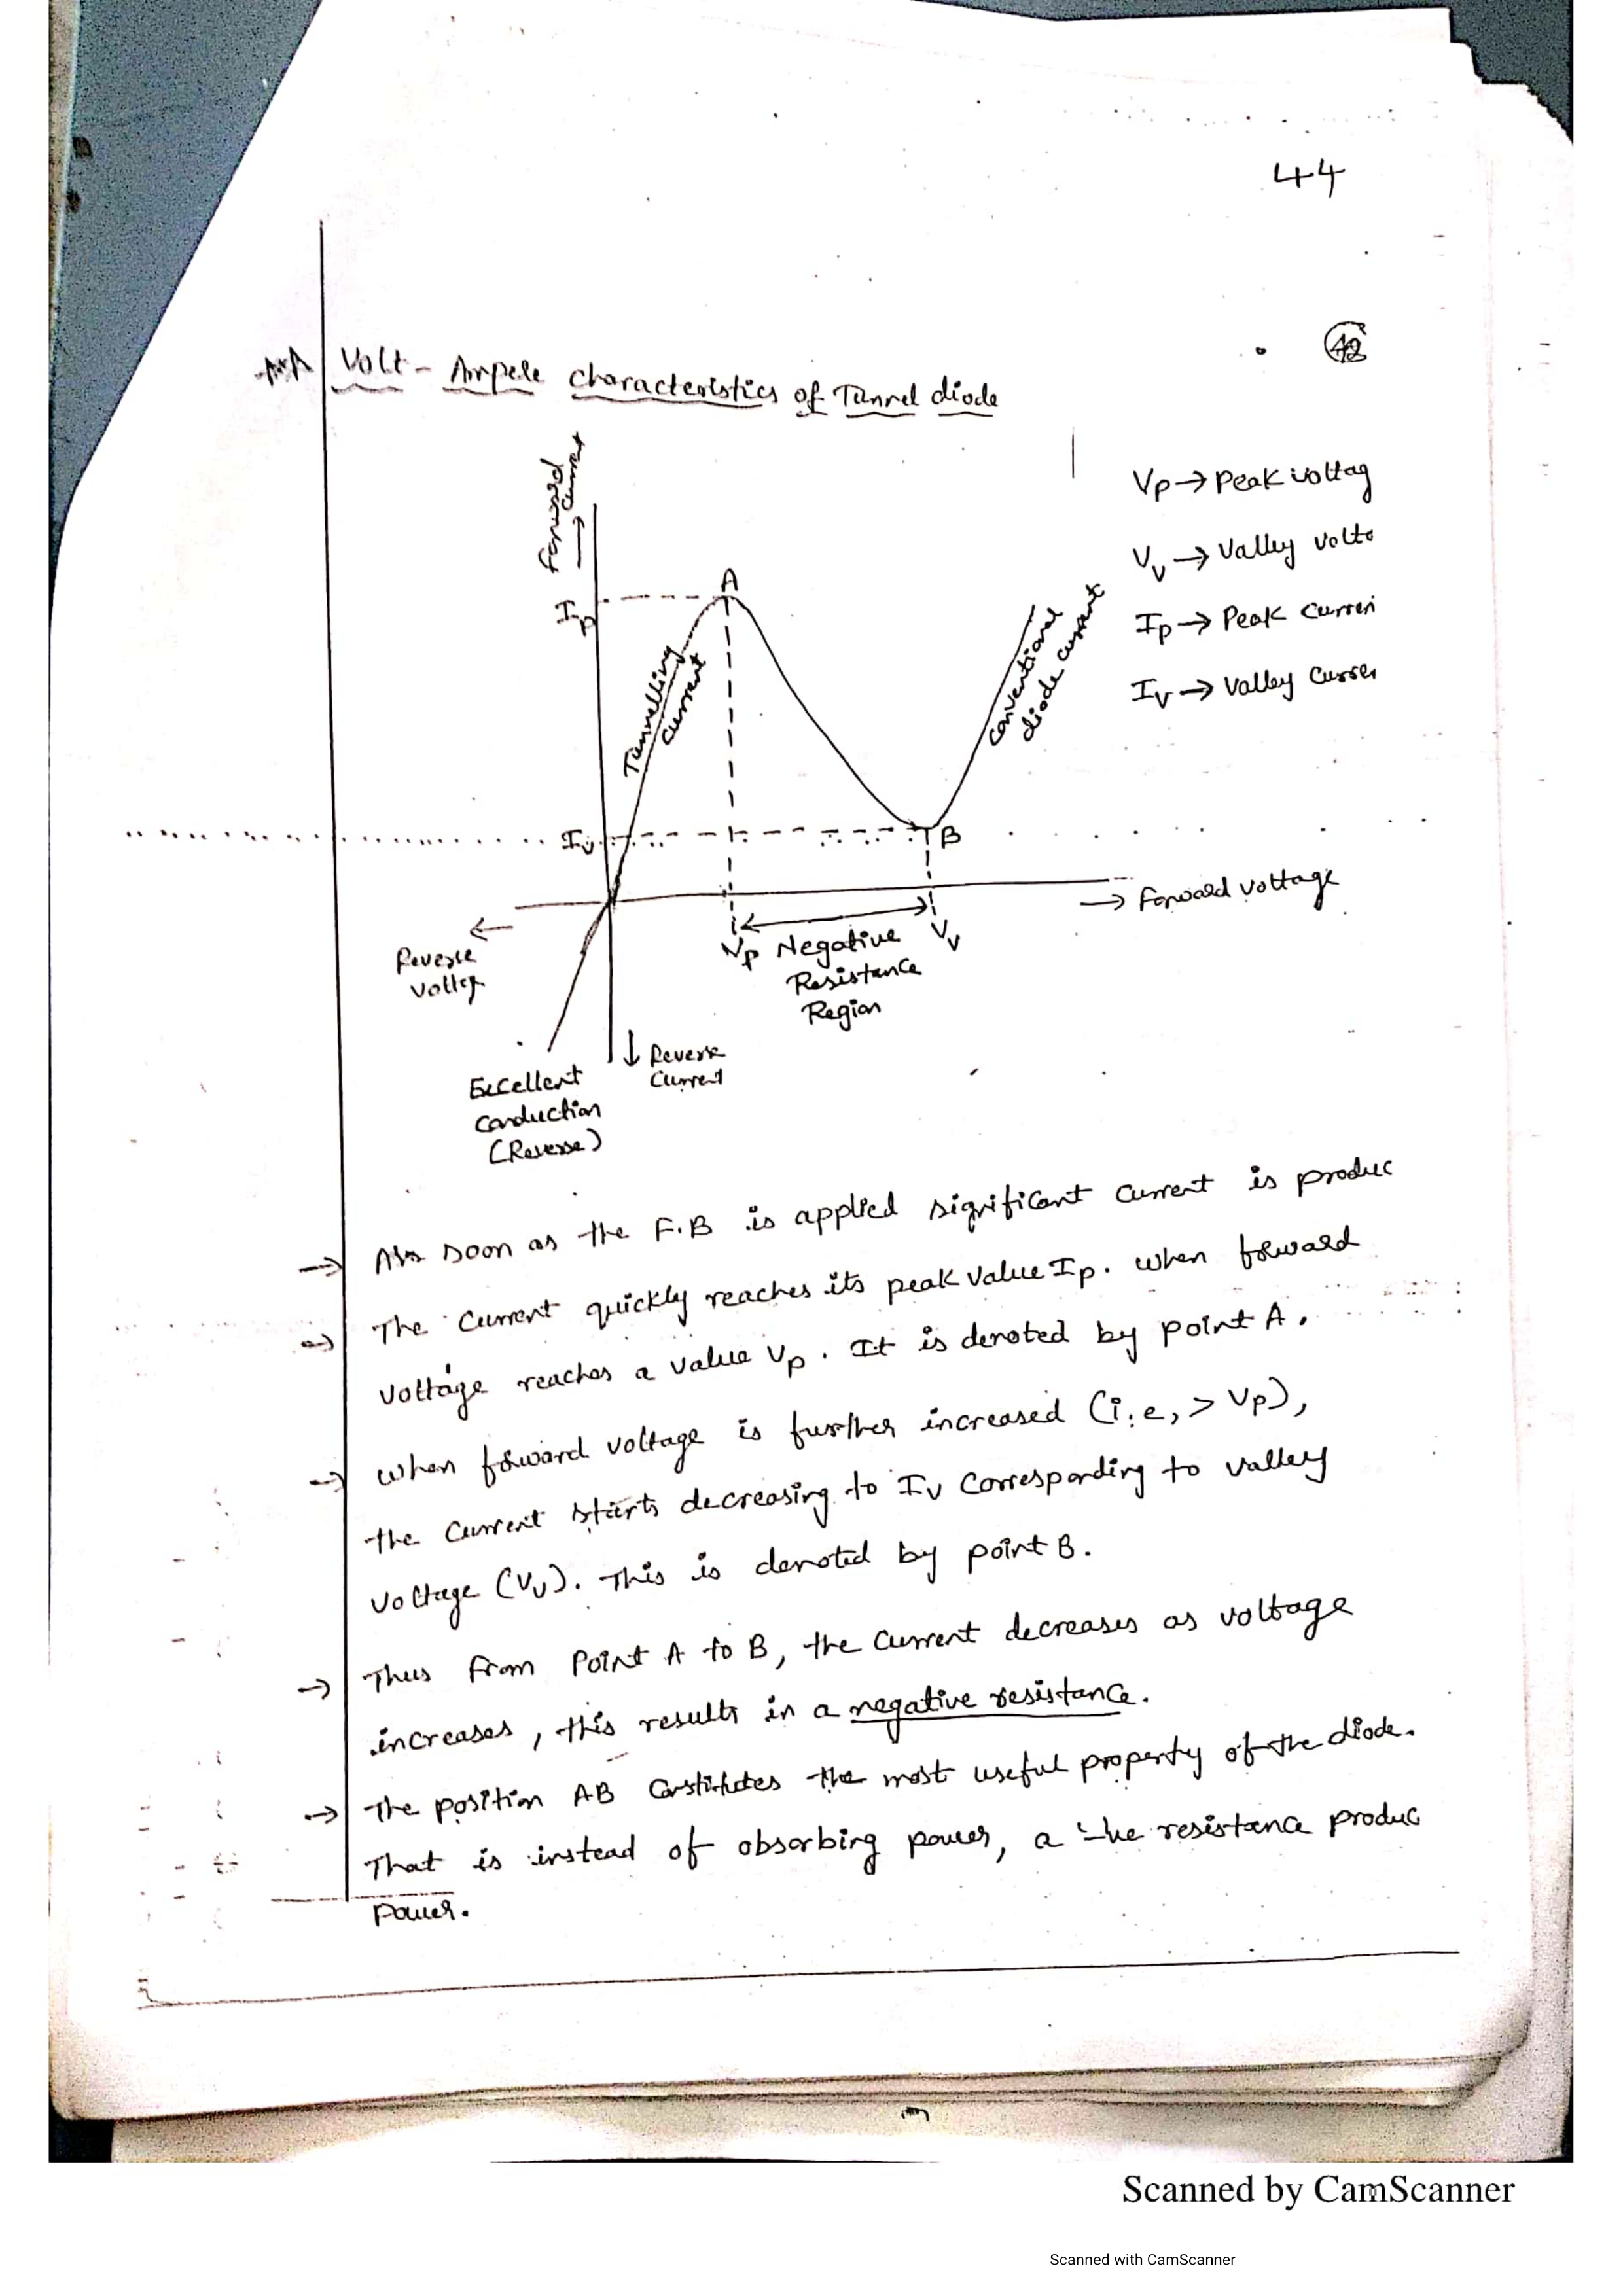 44
42
Volt - Ampere characteristics of Tunnel diode
Forward
current
Vp → Peak voltag
Vv → Valley volta
Ip → Peak curren
Iv → Valley curren
A
Ip
Tunnelling
current
conventional
diode current
Iv
B
→ Forward voltage
Reverse
voltag
Vp Negative Vv
Resistance
Region
↓ Reverse
current
Excellent
conduction
(Reverse)
→ As soon as the F.B is applied significant current is produc
→ The current quickly reaches its peak value Ip. when forward
voltage reaches a value Vp. It is denoted by point A.
→ when forward voltage is further increased (i.e, > Vp),
the current starts decreasing to Iv corresponding to valley
voltage (Vv). This is denoted by point B.
→ Thus from Point A to B, the current decreases as voltage
increases, this results in a negative resistance.
→ The position AB constitutes the most useful property of the diode.
That is instead of absorbing power, a -ve resistance produc
power.
Scanned by CamScanner
Scanned with CamScanner